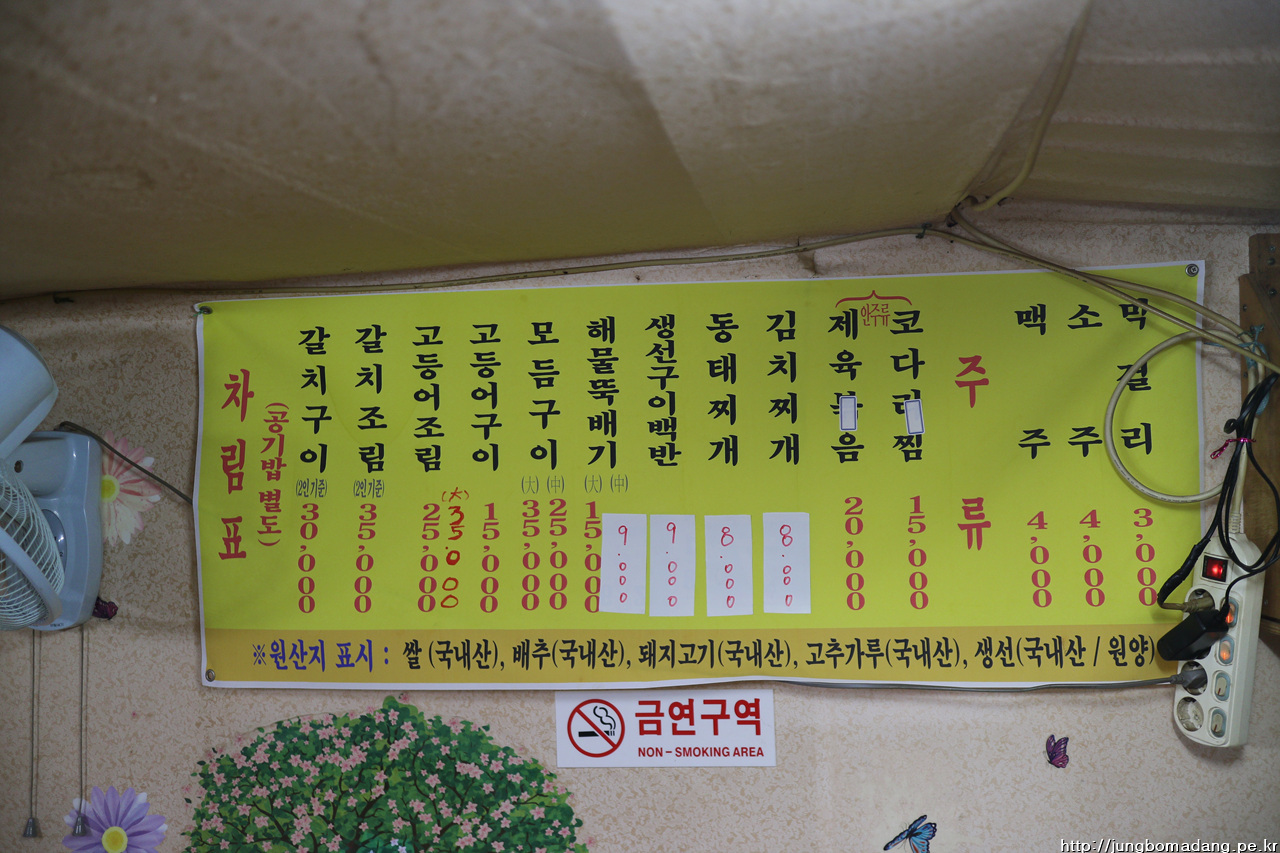 차림표
(공기밥 별도)
갈치구이 (2인기준) 30,000
갈치조림 (2인기준) 35,000
고등어조림 25,000 (大) 35.000
고등어구이 15,000
모듬구이 (大) 35,000 (中) 25,000
해물뚝배기 (大) 15,000 (中) 9.000
생선구이백반 9.000
동태찌개 8.000
김치찌개 8.000
안주류
제육음 20,000
코다찜 15,000
주류
맥주 4,000
소주 4,000
막걸리 3,000
※원산지 표시 : 쌀 (국내산), 배추(국내산), 돼지고기(국내산), 고추가루(국내산), 생선(국내산 / 원양)
금연구역
NON-SMOKING AREA
http://jungbomadang.pe.kr